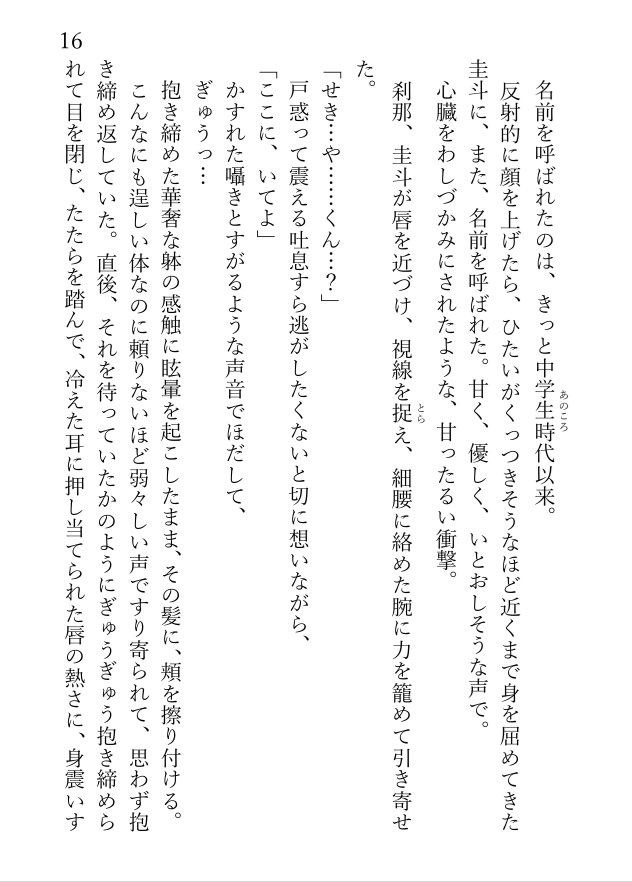 16
名前を呼ばれたのは、きっと中学生時代以来。
あのころ
反射的に顔を上げたら、ひたいがくっつきそうなほど近くまで身を屈めてきた
圭斗に、また、名前を呼ばれた。甘く、優しく、いとおしそうな声で。
心臓をわしづかみにされたような、甘ったるい衝撃。
刹那、圭斗が唇を近づけ、視線を捉え、細腰に絡めた腕に力を籠めて引き寄せ
とら
た。
「せき…や……くん…？」
戸惑って震える吐息すら逃がしたくないと切に想いながら、
「ここに、いてよ」
かすれた囁きとすがるような声音でほだして、
ぎゅうっ…
抱き締めた華奢な躰の感触に眩暈を起こしたまま、その髪に、頬を擦り付ける。
こんなにも逞しい体なのに頼りないほど弱々しい声ですり寄られて、思わず抱
き締め返していた。直後、それを待っていたかのようにぎゅうぎゅう抱き締めら
れて目を閉じ、たたらを踏んで、冷えた耳に押し当てられた唇の熱さに、身震いす